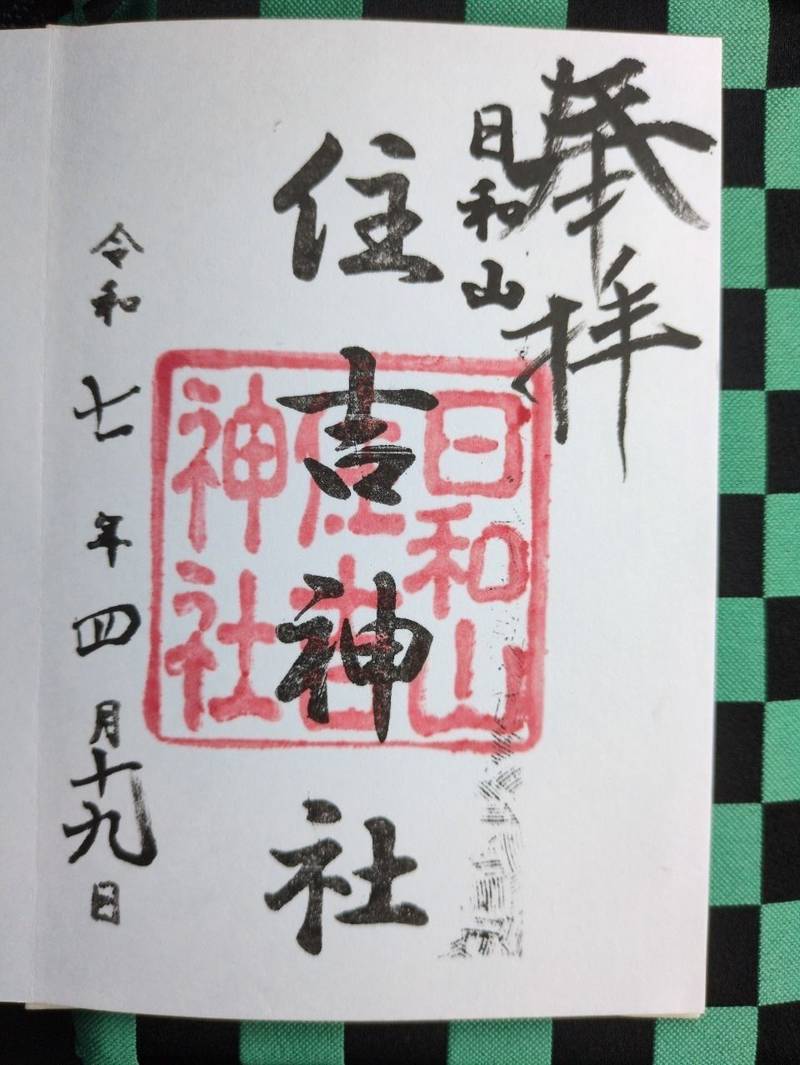 奉拝
日和山
住吉神社
日和山
住吉
神社
令和七年四月十九日